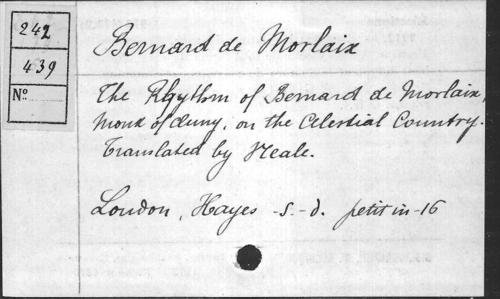 242
439
Nº
Bernard de Morlaix
The Rhythm of Bernard de Morlaix,
Monk of Cluny, on the Celestial Country.
Translated by Neale.
London, Hayes -s.-d. petit in-16